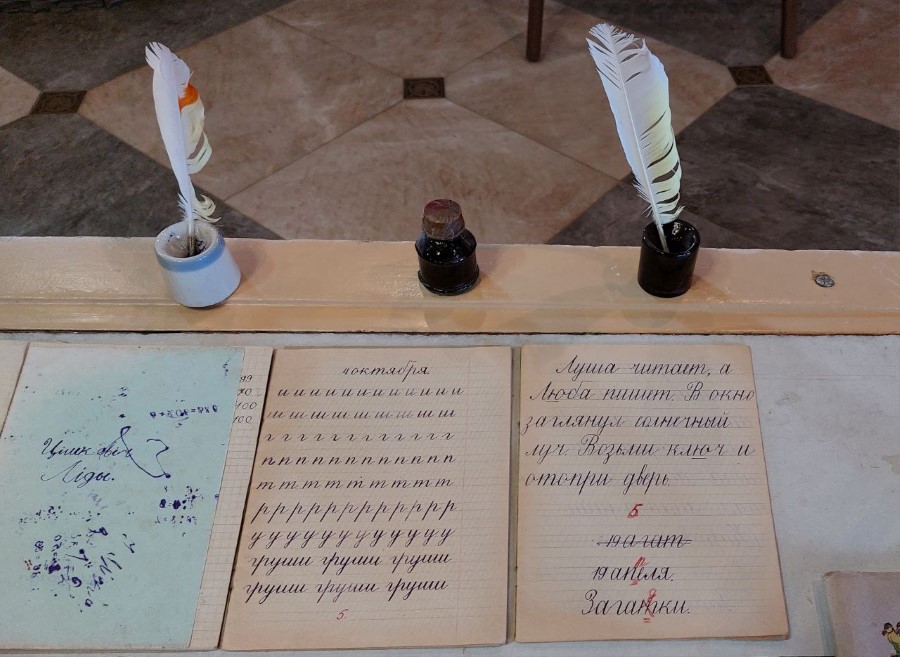 Ліды.
4 октября
и и и и и и и и и и и и
ш ш ш ш ш ш ш ш ш ш
г г г г г г г г г г г г
п п п п п п п п п п п
т т т т т т т т т
р р р р р р р р р р р р р
у у у у у у у у у у у у
груши груши груши
груши груши груши
5.
Луша читает, а
Люба пишет. В окно
заглянул солнечный
луч. Возьми ключ и
отопри дверь.
5
19 агат
19 апеля.
Загатки.